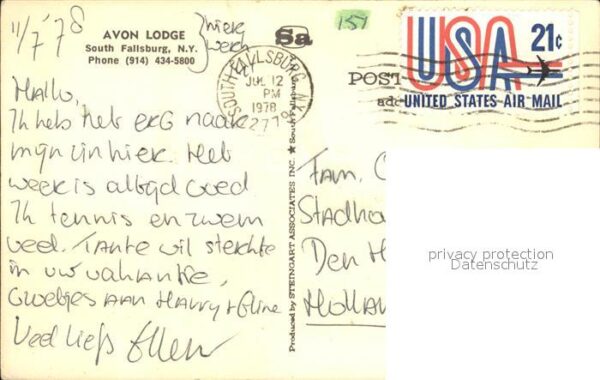 11/7 '78
AVON LODGE
South Fallsburg, N.Y.
Phone (914) 434-5800
hier
werk
Sa
157
SOUTH FALLSBURG, N.Y.
JUL 12
PM
1978
POST
add
USA 21c
UNITED STATES AIR MAIL
Hallo,
Ik heb het erg naar
mijn zin hier. Het
weer is altijd goed
Ik tennis en zwem
veel. Tante wil sterkte
in uw vakantie,
Groetjes aan Harry + Eline
Veel liefs Ellen
Produced by STEINGART ASSOCIATES INC. ★ South Fallsburg
Fam. C
Stadho
Den H
Hollan
privacy protection
Datenschutz